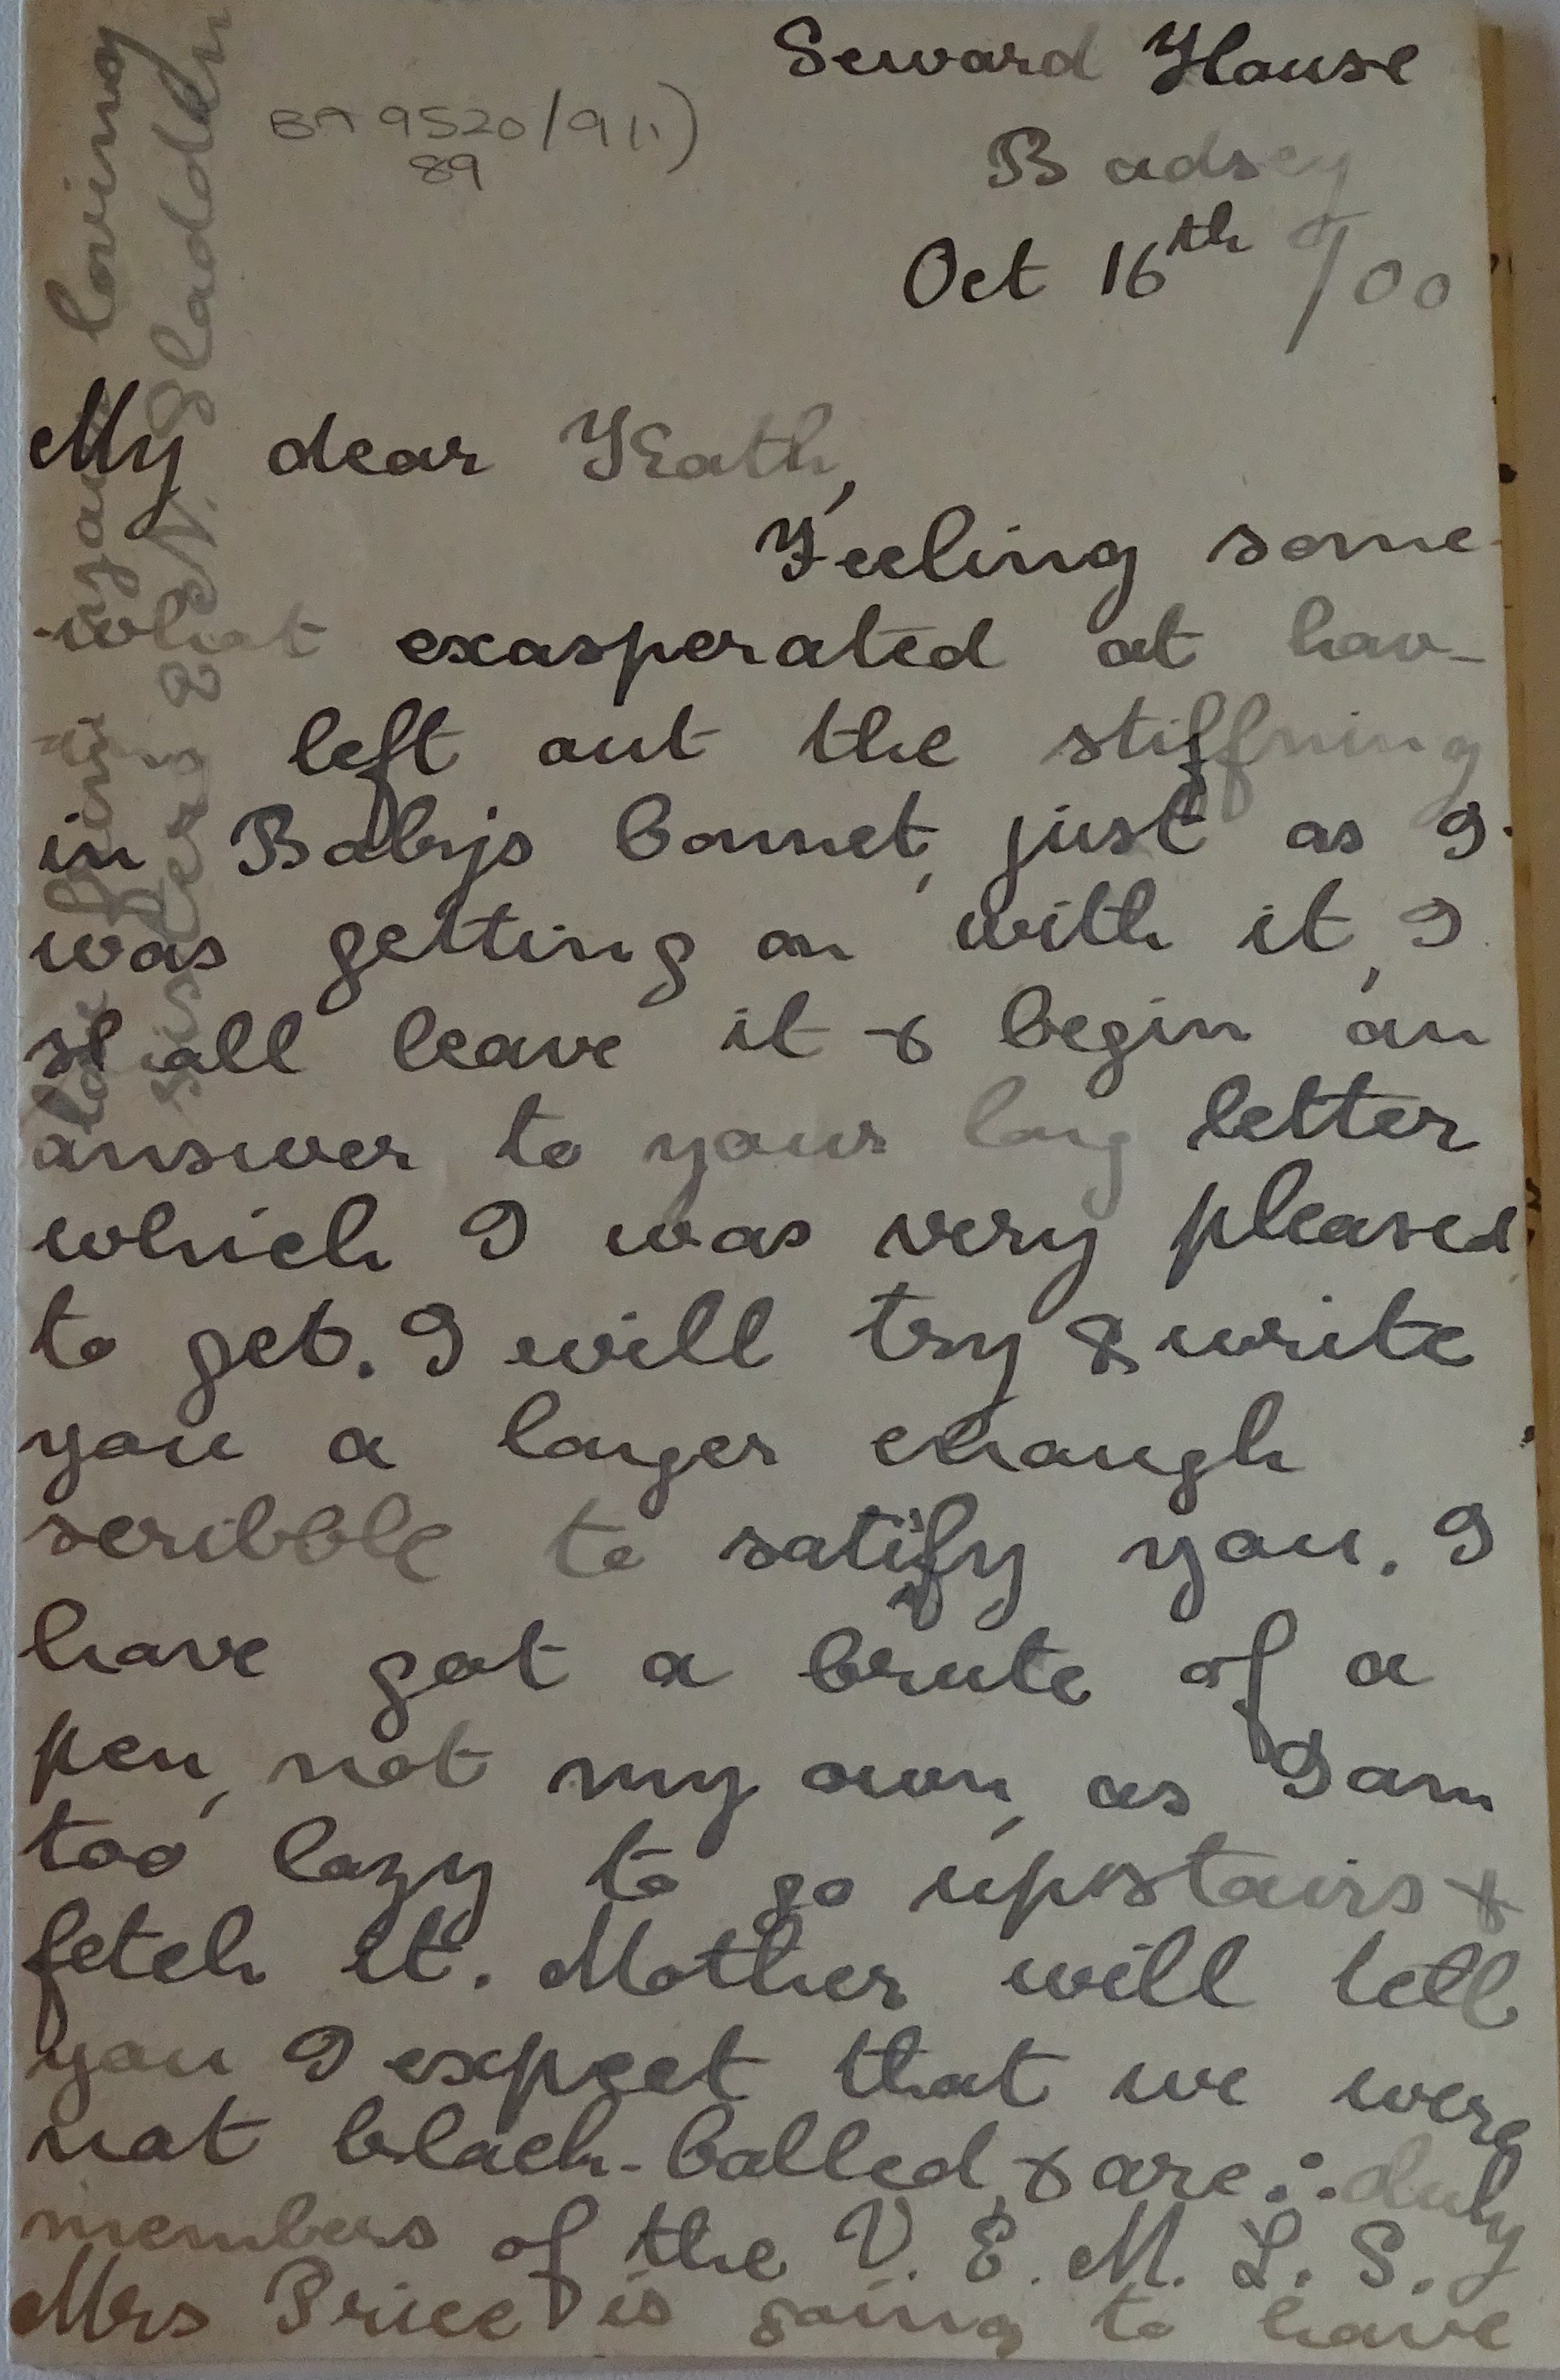 Seward House
BA 9520/9(1)
89
Badsey
Oct 16th /00
My dear Kath,
Feeling some-
-what exasperated at hav-
left out the stiffning
in Babys bonnet, just as I
was getting on with it, I
shall leave it & begin an
answer to your long letter
which I was very pleased
to get. I will try & write
you a longer enough
scribble to satify you. I
have got a brute of a
pen, not my own, as I am
too lazy to go upstairs &
fetch it. Mother will tell
you I expect that we were
not black-balled, & are ∴ duly
members of the V. E. M. L. S.
Mrs Price is going to have
your loving
sister
N. Gladden